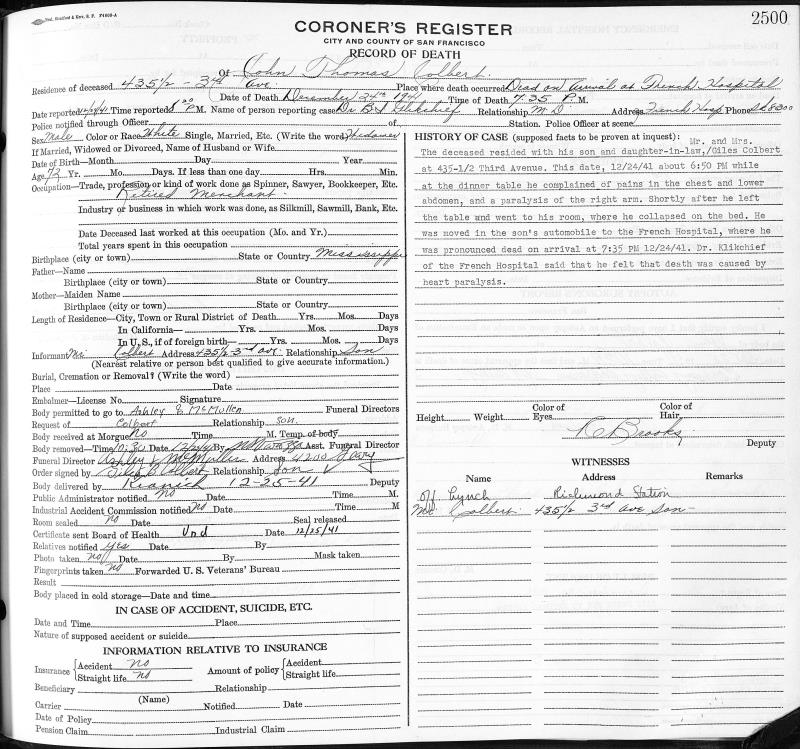 2500
CORONER'S REGISTER
CITY AND COUNTY OF SAN FRANCISCO
RECORD OF DEATH
Of John Thomas Colbert.
Residence of deceased 435 1/2 - 3rd Ave. Place where death occurred Dead on Arrival at French Hospital
Date of Death December 24th 1941 Time of Death 7:35 P. M.
Date reported Time reported 8 00 P M. Name of person reporting case Dr Relationship M D Address French Hosp Phone
Police notified through Officer of Station. Police Officer at scene
Sex Male Color or Race White Single, Married, Etc. (Write the word) Widower
If Married, Widowed or Divorced, Name of Husband or Wife
Date of Birth—Month Day Year
Age 72 Yr. Mo. Days. If less than one day Hrs. Min.
Occupation—Trade, profession or kind of work done as Spinner, Sawyer, Bookkeeper, Etc.
Retired Merchant
Industry or business in which work was done, as Silkmill, Sawmill, Bank, Etc.
Date Deceased last worked at this occupation (Mo. and Yr.)
Total years spent in this occupation
Birthplace (city or town) State or Country Mississippi
Father—Name
Birthplace (city or town) State or Country
Mother—Maiden Name
Birthplace (city or town) State or Country
Length of Residence—City, Town or Rural District of Death Yrs. Mos. Days
In California— Yrs. Mos. Days
In U. S., if of foreign birth— Yrs. Mos. Days
Informant Mr Colbert Address 435 1/2 3rd ave. Relationship Son
(Nearest relative or person best qualified to give accurate information.)
Burial, Cremation or Removal? (Write the word)
Place Date
Embalmer—License No. Signature
Body permitted to go to Ashley & McMullen Funeral Directors
Request of Colbert Relationship son.
Body received at Morgue No Time M. Temp. of body
Body removed—Time 10:30 Date 12/24/41 By Asst. Funeral Director
Funeral Director Ashley & McMullen Address 4200 Geary
Order signed by Giles Colbert Relationship Son
Body delivered by 12-25-41 Deputy
Public Administrator notified No Date Time M.
Industrial Accident Commission notified No Date Time M
Room sealed No Date Seal released
Certificate sent Board of Health Und Date 12/25/41
Relatives notified Yes Date By
Photo taken no Date By Mask taken
Fingerprints taken no Forwarded U. S. Veterans' Bureau
Result
Body placed in cold storage—Date and time
IN CASE OF ACCIDENT, SUICIDE, ETC.
Date and Time Place
Nature of supposed accident or suicide
INFORMATION RELATIVE TO INSURANCE
Insurance Accident No Amount of policy Accident
Straight life No Straight life
Beneficiary Relationship
(Name)
Carrier Notified Date
Date of Policy
Pension Claim Industrial Claim
HISTORY OF CASE (supposed facts to be proven at inquest):
Mr. and Mrs.
The deceased resided with his son and daughter-in-law,/Giles Colbert
at 435-1/2 Third Avenue. This date, 12/24/41 about 6:50 PM while
at the dinner table he complained of pains in the chest and lower
abdomen, and a paralysis of the right arm. Shortly after he left
the table and went to his room, where he collapsed on the bed. He
was moved in the son's automobile to the French Hospital, where he
was pronounced dead on arrival at 7:35 PM 12/24/41. Dr. Klikchief
of the French Hospital said that he felt that death was caused by
heart paralysis.
Height Weight Color of Eyes Color of Hair
R C Brooks
Deputy
WITNESSES
Name Address Remarks
Off Lynch Richmond Station
Mr. Colbert. 435 1/2 3rd Ave Son-